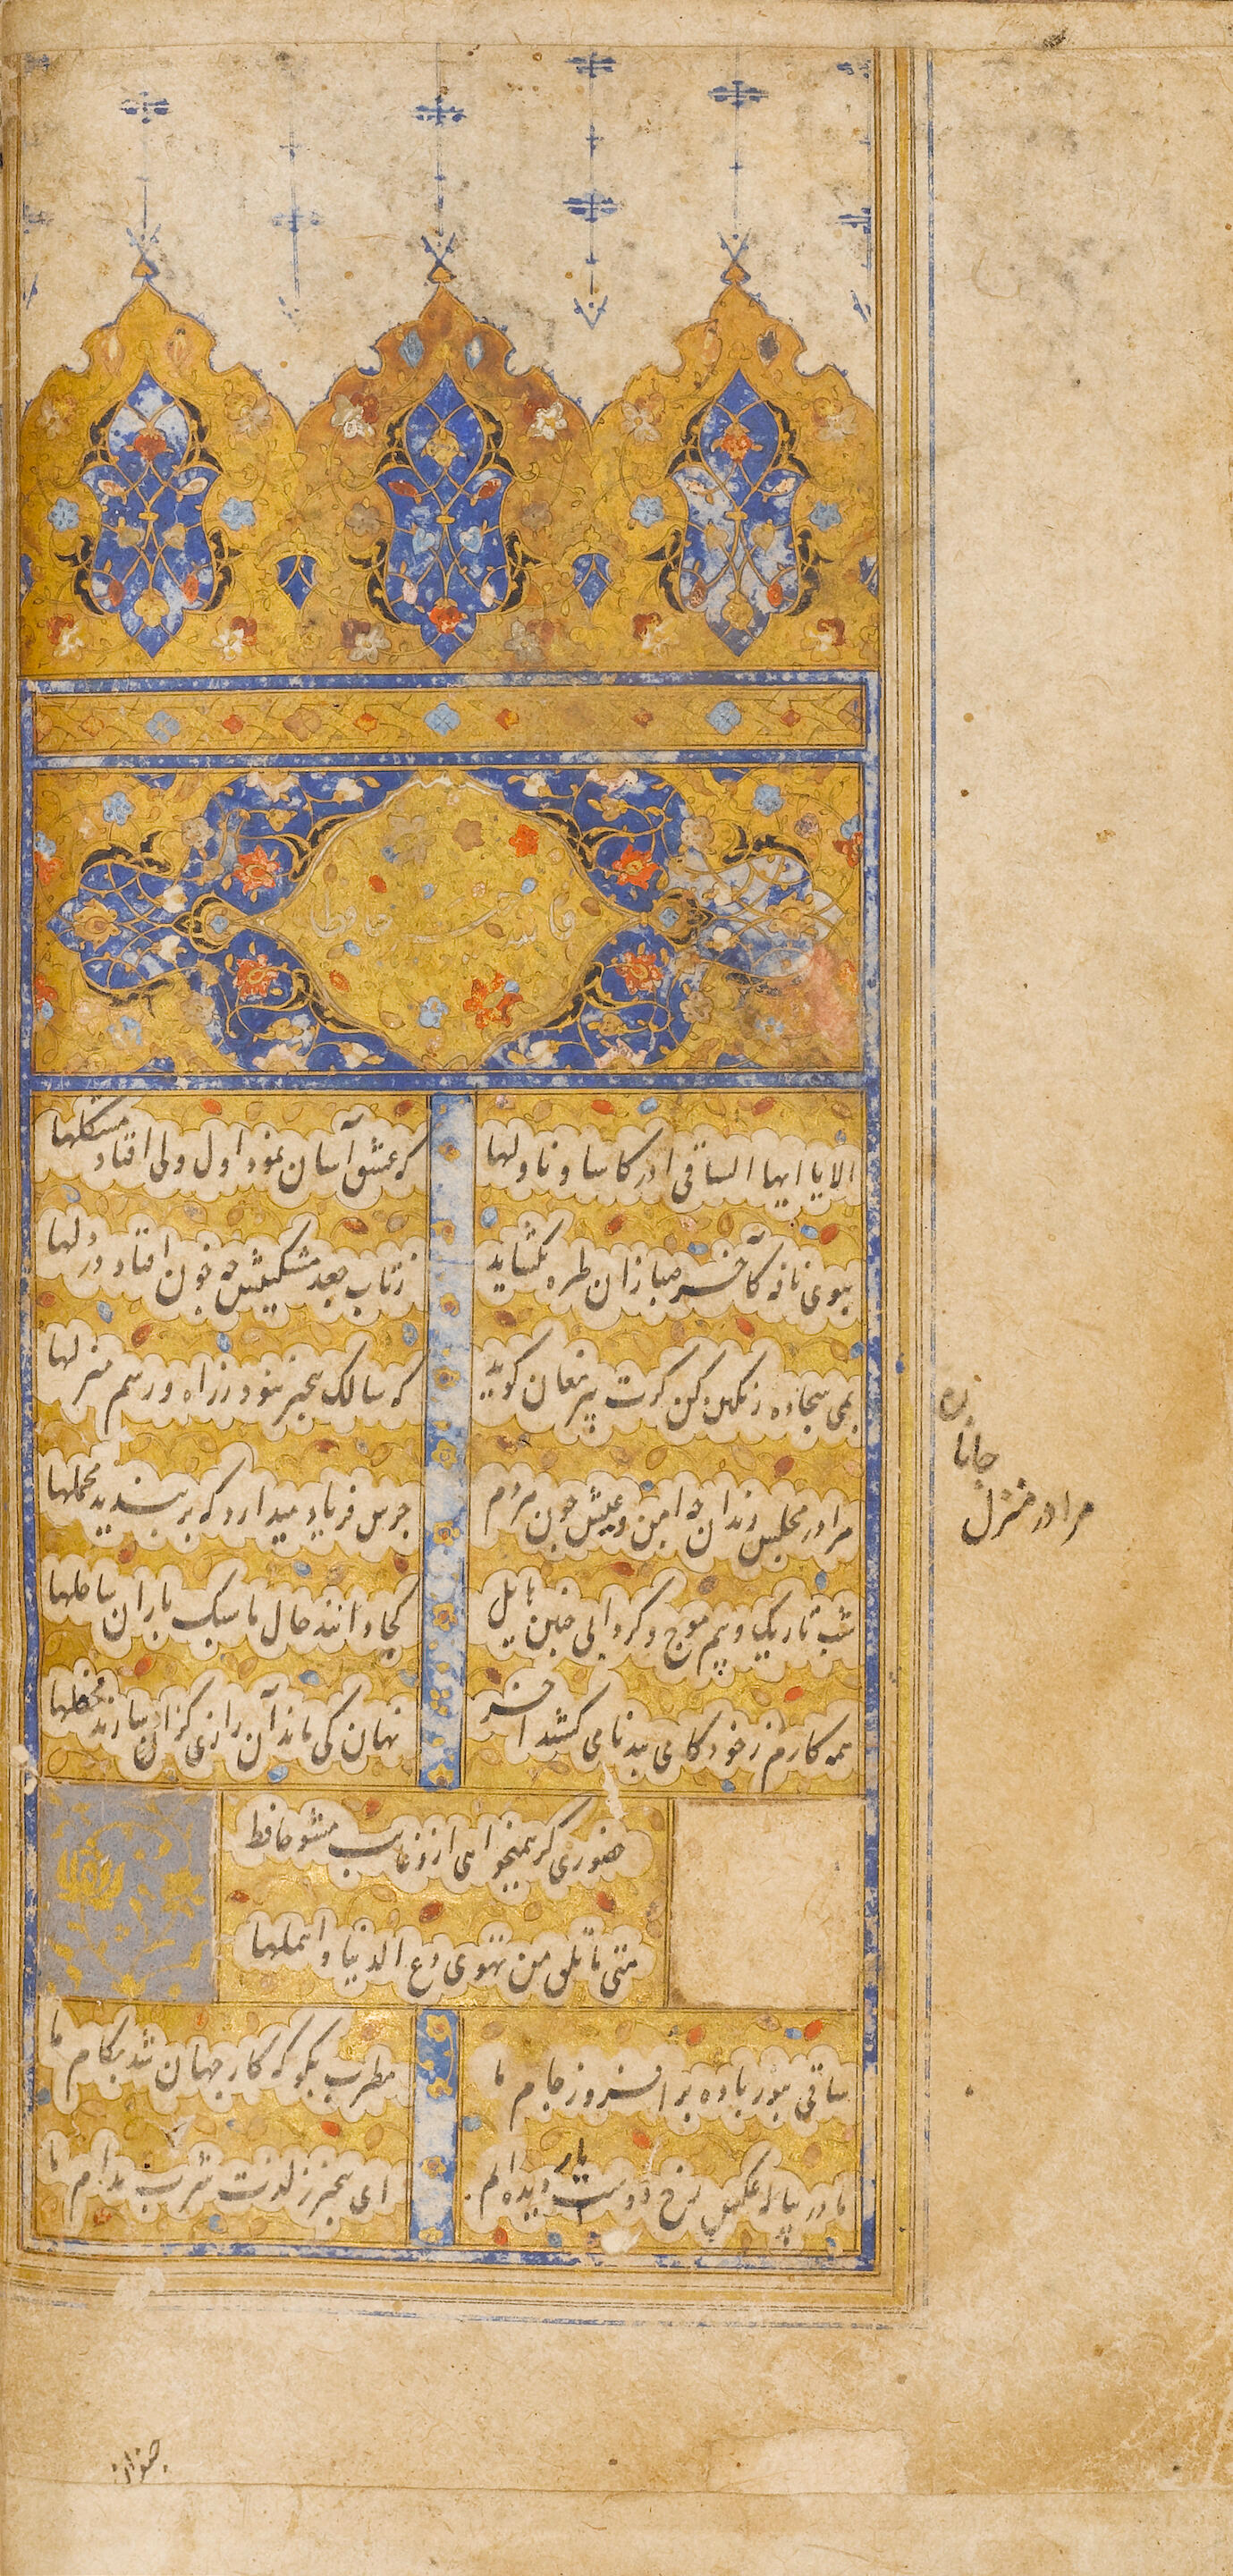 الا یا ایها الساقی ادر کاسا و ناولها
که عشق آسان نمود اول ولی افتاد مشکلها
ببوی نافه کآخر صبا زان طره بگشاید
ز تاب جعد مشکینش چه خون افتاد در دلها
بمی سجاده رنگین کن گرت پیر مغان گوید
که سالک بیخبر نبود ز راه و رسم منزلها
مرا در مجلس رندان چه امن و عیش چون مردم
جرس فریاد میدارد که بربندید محملها
شب تاریک و بیم موج و گردابی چنین هایل
کجا دانند حال ما سبک باران ساحلها
همه کارم ز خود کامی ببدنامی کشد آخر
نهان کی ماند آن رازی کزان سازند محفلها
حضوری گر همیخواهی ازو غایب مشو حافظ
متی ما تلق من تهوی دع الدنیا و اهملها
ساقی بنور باده برافروز جام ما
مطرب بگو که کار جهان شد بکام ما
ما در پیاله عکس رخ دوست یار دیده ایم
ای بیخبر ز لذت شرب مدام ما
مرا در منزل
جانان